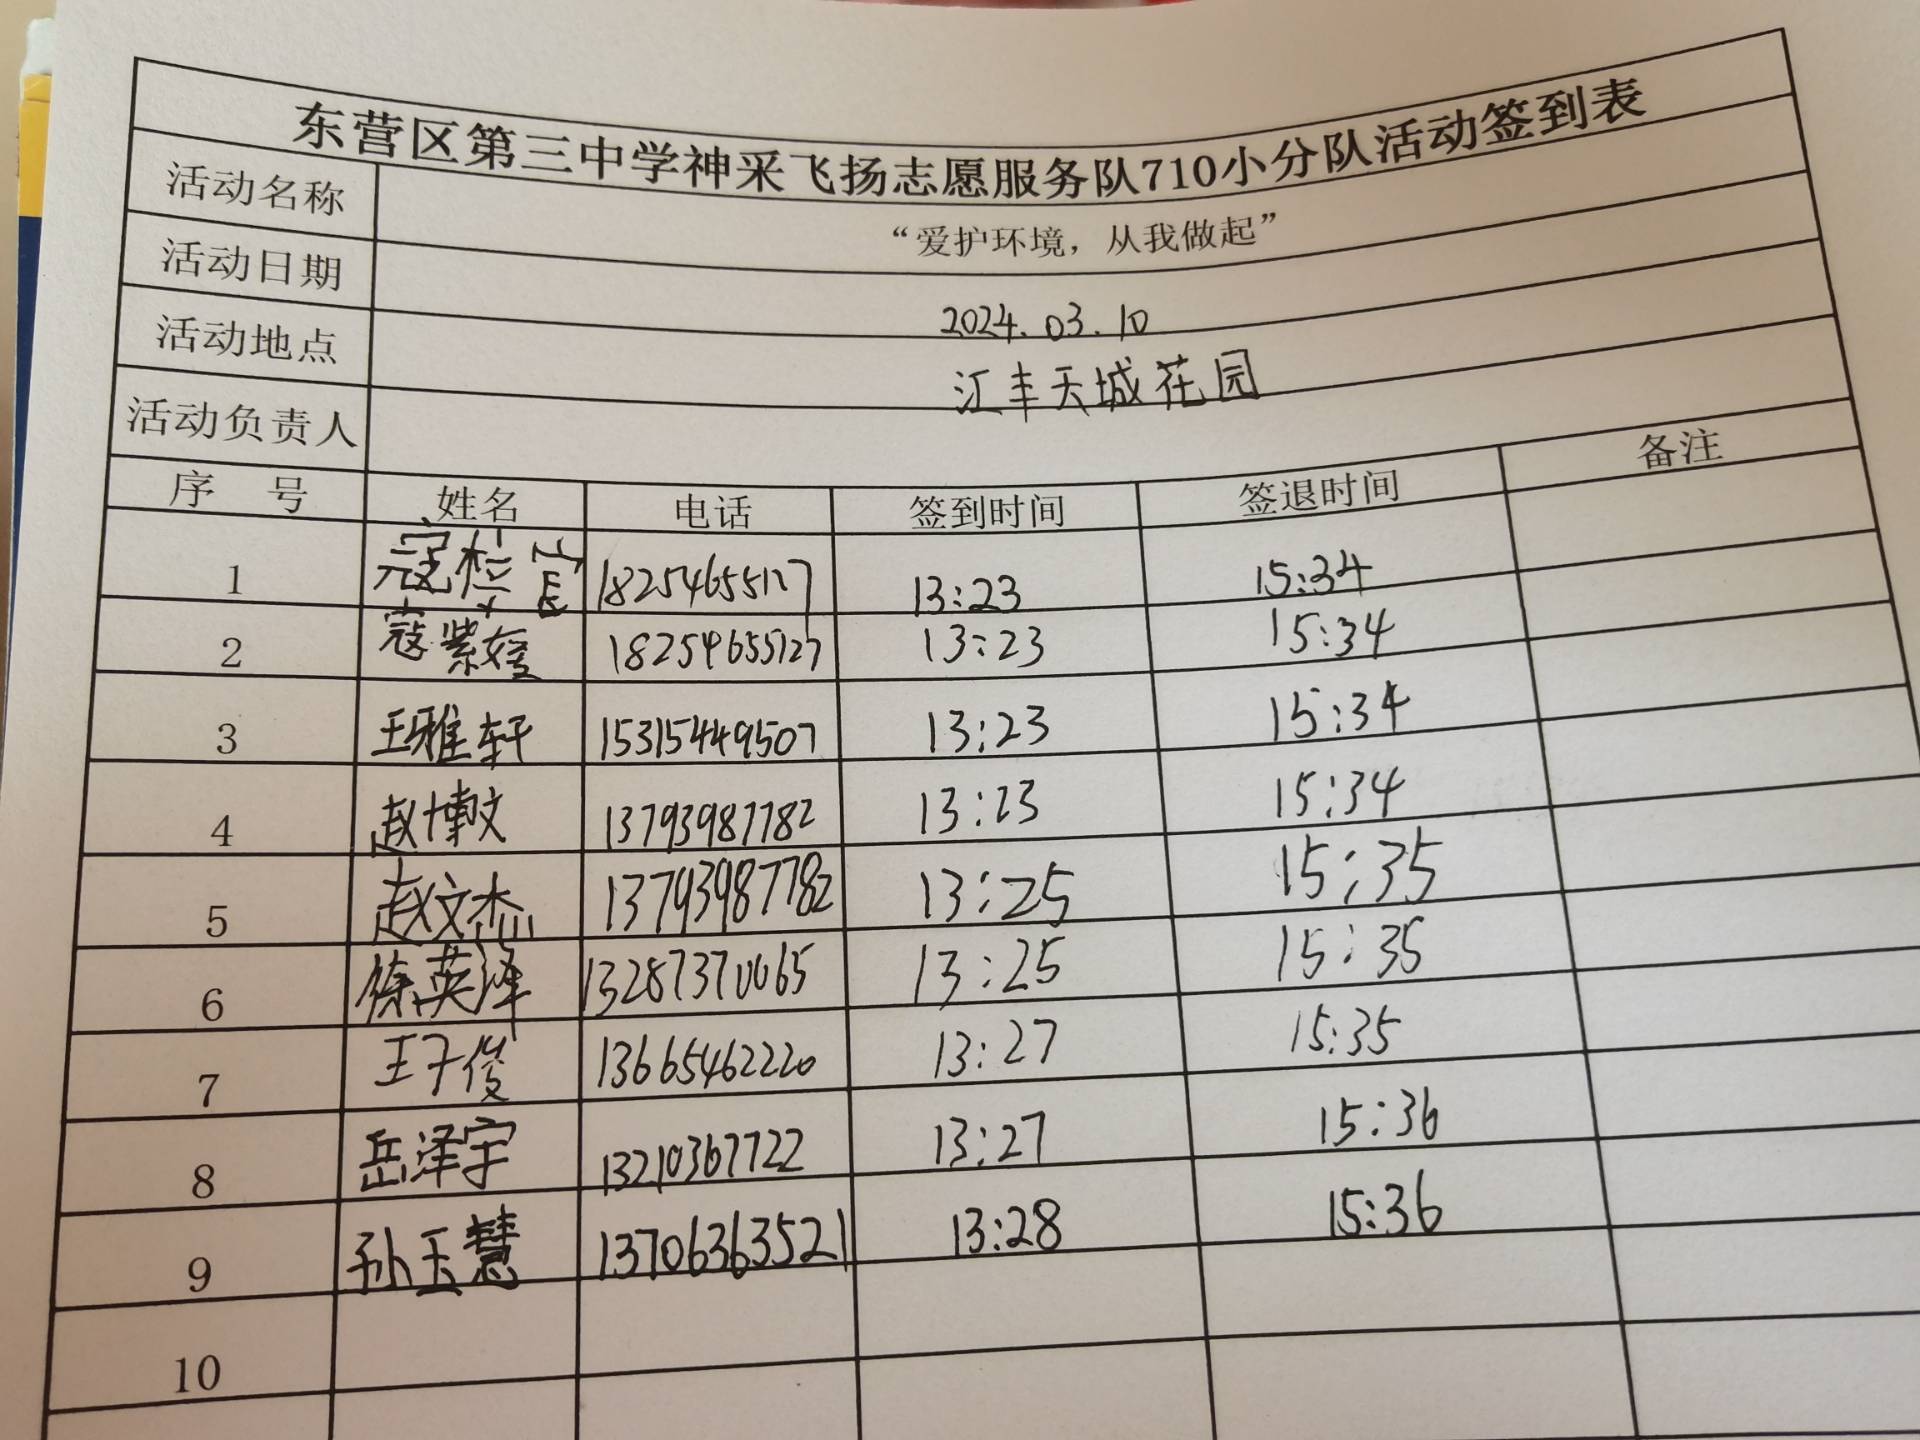 东营区第三中学神采飞扬志愿服务队710小分队活动签到表
活动名称 “爱护环境，从我做起”
活动日期 2024.03.10
活动地点 江丰天城花园
活动负责人
序 号 姓名 电话 签到时间 签退时间 备注
1 18254655127 13:23 15:34
2 寇紫媛 18254655127 13:23 15:34
3 王雅轩 15315449507 13:23 15:34
4 赵博文 13793987782 13:23 15:34
5 赵文杰 13793987782 13:25 15:35
6 徐英泽 13287370065 13:25 15:35
7 王子俊 13665462220 13:27 15:35
8 岳泽宇 13210367722 13:27 15:36
9 孙玉慧 13706363521 13:28 15:36
10